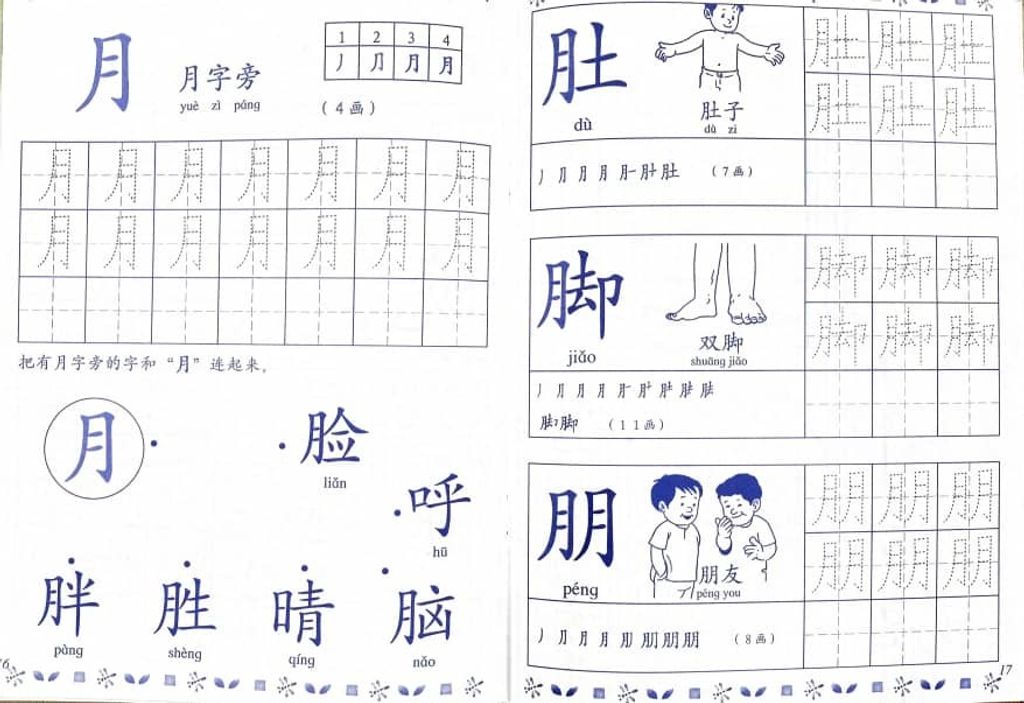 月
月字旁
yuè zì páng
1 2 3 4
丿 ⺆ 月 月
（4画）
月 月 月 月 月 月 月
月 月 月 月 月 月 月
把有月字旁的字和“月”连起来。
月
脸
liǎn
呼
hū
胖 胜 晴 脑
pàng shèng qíng nǎo
16
肚
dù
肚子
dù zi
肚 肚 肚
肚 肚 肚
（7画）
脚
jiǎo
双脚
shuāng jiǎo
脚 脚 脚
脚 脚 脚
（11画）
朋
péng
朋友
péng you
朋 朋 朋
朋 朋 朋
（8画）
17